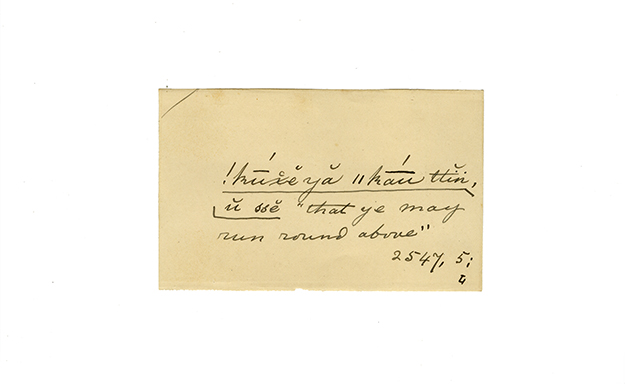 !kú̄χĕ yă ǁkā́u ttĭn,
ŭ ssĕ "that ye may
run round above"
2547, 5;
4